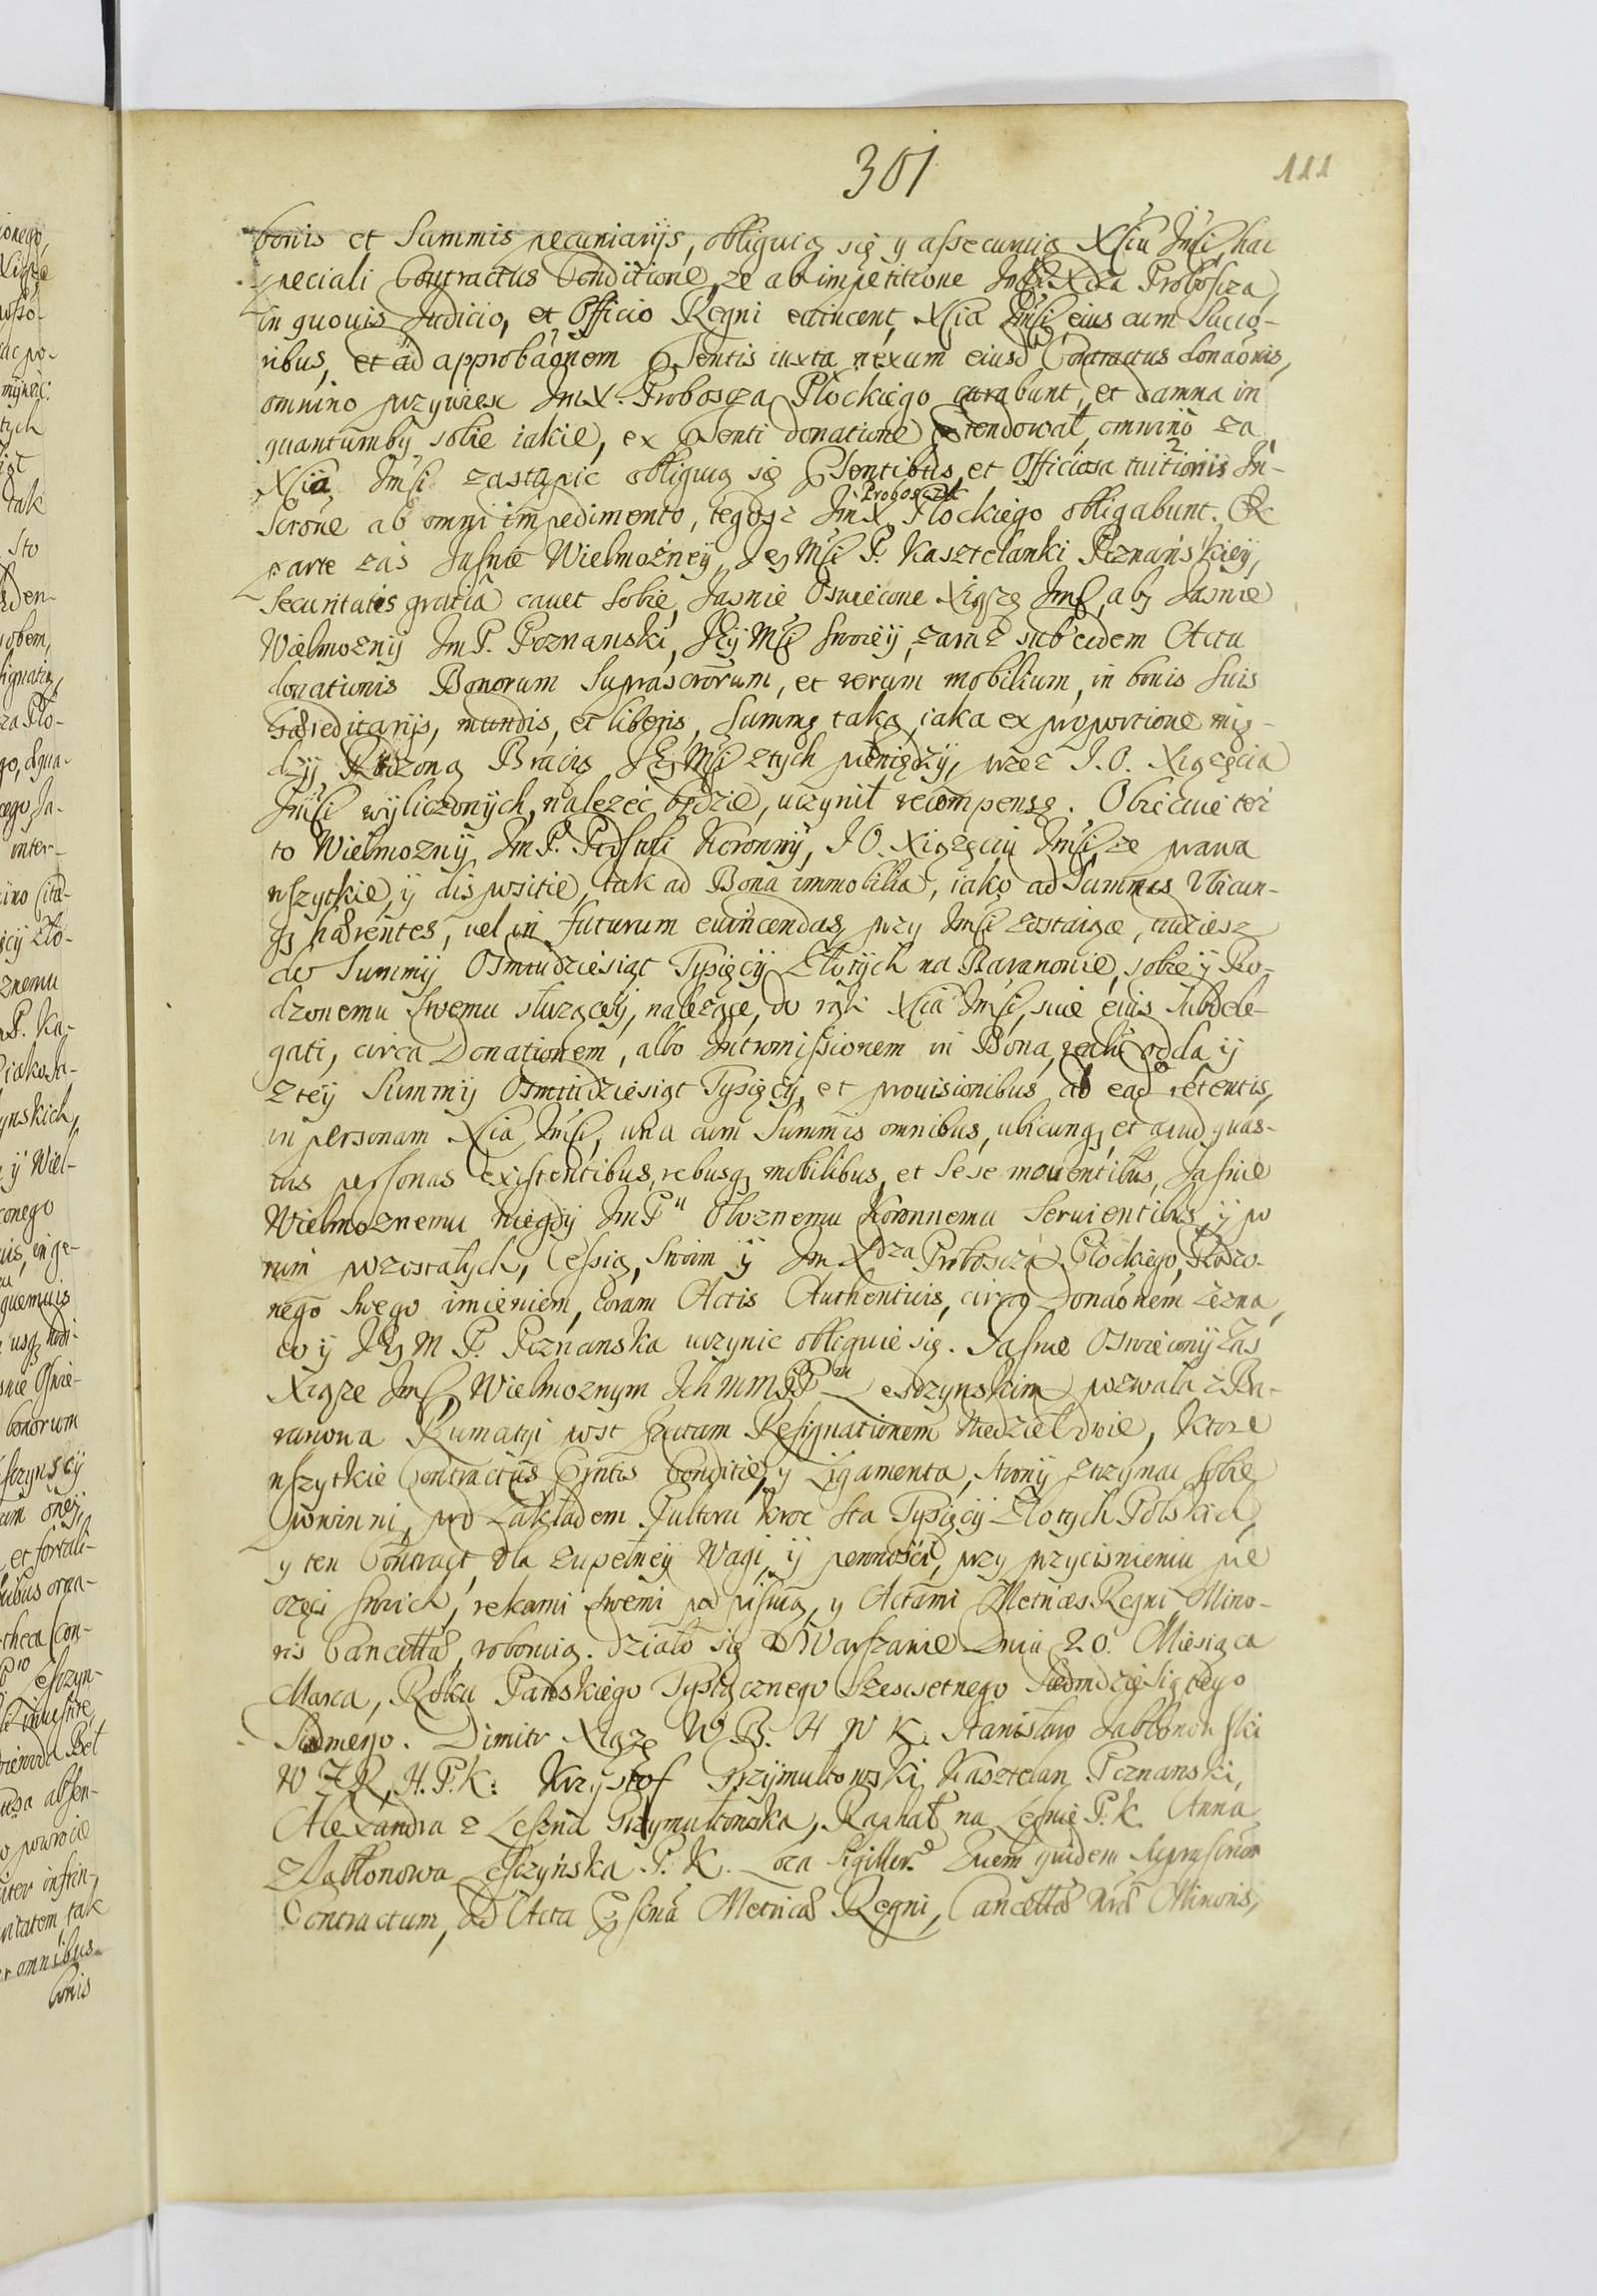 301
111
bonis et Summis pecuniarijs, obliguią się y assecuruią Xciu Jmści, hac
speciali Contractus Conditione, ze ab impetitione Jmści Xdza Proboscza,
in quouis Judicio, et Officio Regni euincent, Xcia Jmści eius cum Succo-
ribus, et ad approbaõnem Psentis iuxta nexum eiusd Contractus donaõnis,
omnino przywiesc Jm X. Proboscza Płockiego curabunt, et damna in
quantumby sobie iakie, ex Psenti donatione praetendował, omnino za
Xcia Jmści zastąpic obliguią się Psentibus, et Officiosa tuitionis In-
Scrõne ab omni impedimento, tegosz Jm X Proboszcza Płockiego obligabunt. Ex
parte zas Jasnie Wielmozney, Jey Mści P. Kasztelanki Poznanskiey,
Securitatis gratia cauet sobie, Jasnie Oswiecone Xiąze Jmść, aby Jasnie
Wielmozny Jm P. Poznanski, Jey Mści swoiey, zaraz sub eodem Actu
donationis Bonorum Suprascrorum, et rerum mobilium, in bonis suis
haereditarijs, mundis, et liberis, Summę taką, iaka ex proportione mię-
dzy Rodzoną Bracią Jey Mści z tych pieniędzy, przez J.O. Xiązęcia
Jmści wyliczonych, nalezec będzie, uczynił recompensę. Obiecuie tez
to Wielmozny Jm P. Podstoli Koronny, J O. Xiązęciu Jmści, ze prawa
wszytkie, y dispositie, tak ad Bona immobilia, iako ad Summas Vbicun-
q3 haerentes, vel in futurum euincendas, przy Jmści zostaiące, tudziesz
do Summy Osmudziesiąt Tysięcy Złotych na Baranowie, sobie y Ro-
dzonemu swemu słuzącey, nalezące, do rąk Xcia Jmści, siue eius Subdele-
gati, circa Donationem, albo Intromissionem in Bona, realit odda y
z tey Summy Osmudziesiąt Tysięcy, et prouisionibus ab ead retentis,
in personam Xcia Jmści, una cum Summis omnibus, ubicunq3 et apud quas-
uis personas existentibus, rebusq3 mobilibus, et sese mouentibus, Jasnie
Wielmoznemu niegdy Jm P Oboznemu Koronnemu Seruientibus, y po
nim pozostałych, Cessią, swoim y Jm Xdza Proboscza Płockiego, Rodzo-
nego Swego imieniem, coram Actis Authenticis, circa Donaõnem zezna,
co y Jey M P. Poznanska uczynic obliguie się. Jasnie Oswiecony zas
Xiąze Jmść, Wielmoznym Ich MM PPm Lesczynskim pozwala z Ba-
ranowa Rumatyi post factam Resignationem Niedziel dwie, Ktore
wszytkie Contractus Pntis Conditie, y Ligamenta, strony strzymac sobie
powinni, pod zakładem Pułtora kroc sta Tysięcy Złotych Polskich,
y ten Contract, dla zupełney wagi, y pewnosci, przy przycisnieniu pie
częci swoich, rękami swemi podpisuią, y Actami Metricae Regni Mino-
ris Cancellae, roboruią. Działo się w Warszawie Dnia 20. Miesiąca
Marca, Roku Panskiego Tysiącznego Szescsetnego Siedmdziesiątego
Siodmego. Dimitr Xiąze W.B. H W K. Stanisław Jabłonowski
W Z R, H. P. K: Krzysztof Przyimultowski Kasztelan Poznanski,
Alexandra z Leszna Przymultowska, Raphał na Lesnie P. K. Anna
z Jabłonowa Lesczyńska P. K. Loca Sigillor. Quem quidem Suprascriom
Contractum, ad Acta Psena Metricae Regni, Cancellae nrae Minoris,